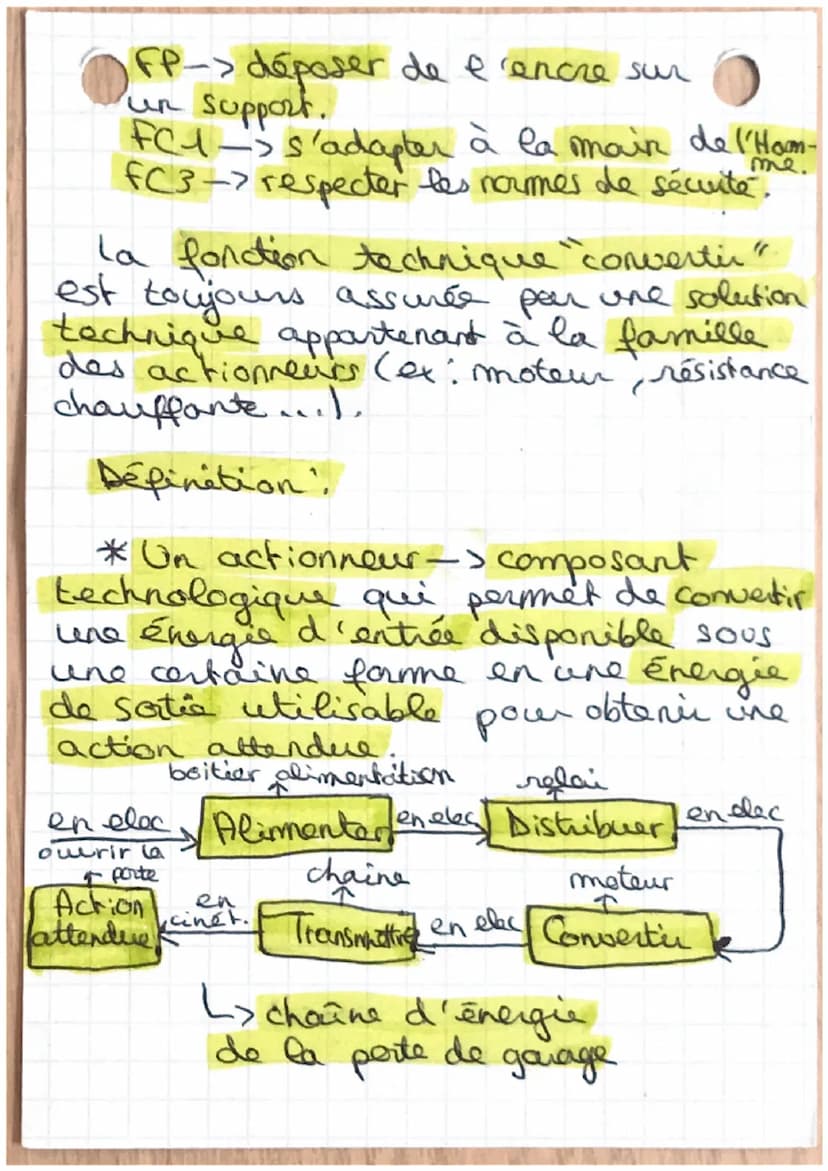 FP -> déposer de l'encre sur
un support.
FC1 -> s'adapter à la main de l'Hom-
me.
FC3 -> respecter les normes de sécurité.
La fonction technique "convertir"
est toujours assurée par une solution
technique appartenant à la famille
des actionneurs (ex : moteur, résistance
chauffante ...).
Définition :
* Un actionneur -> composant
technologique qui permet de convertir
une énergie d'entrée disponible sous
une certaine forme en une énergie
de sortie utilisable pour obtenir une
action attendue.
boitier alimentation relai
en elec Alimenter en elec Distribuer en elec
ouvrir la
porte chaine moteur
Action
attendue en
cinét. Transmettre en elec Convertir
↳ chaîne d'énergie
de la porte de garage